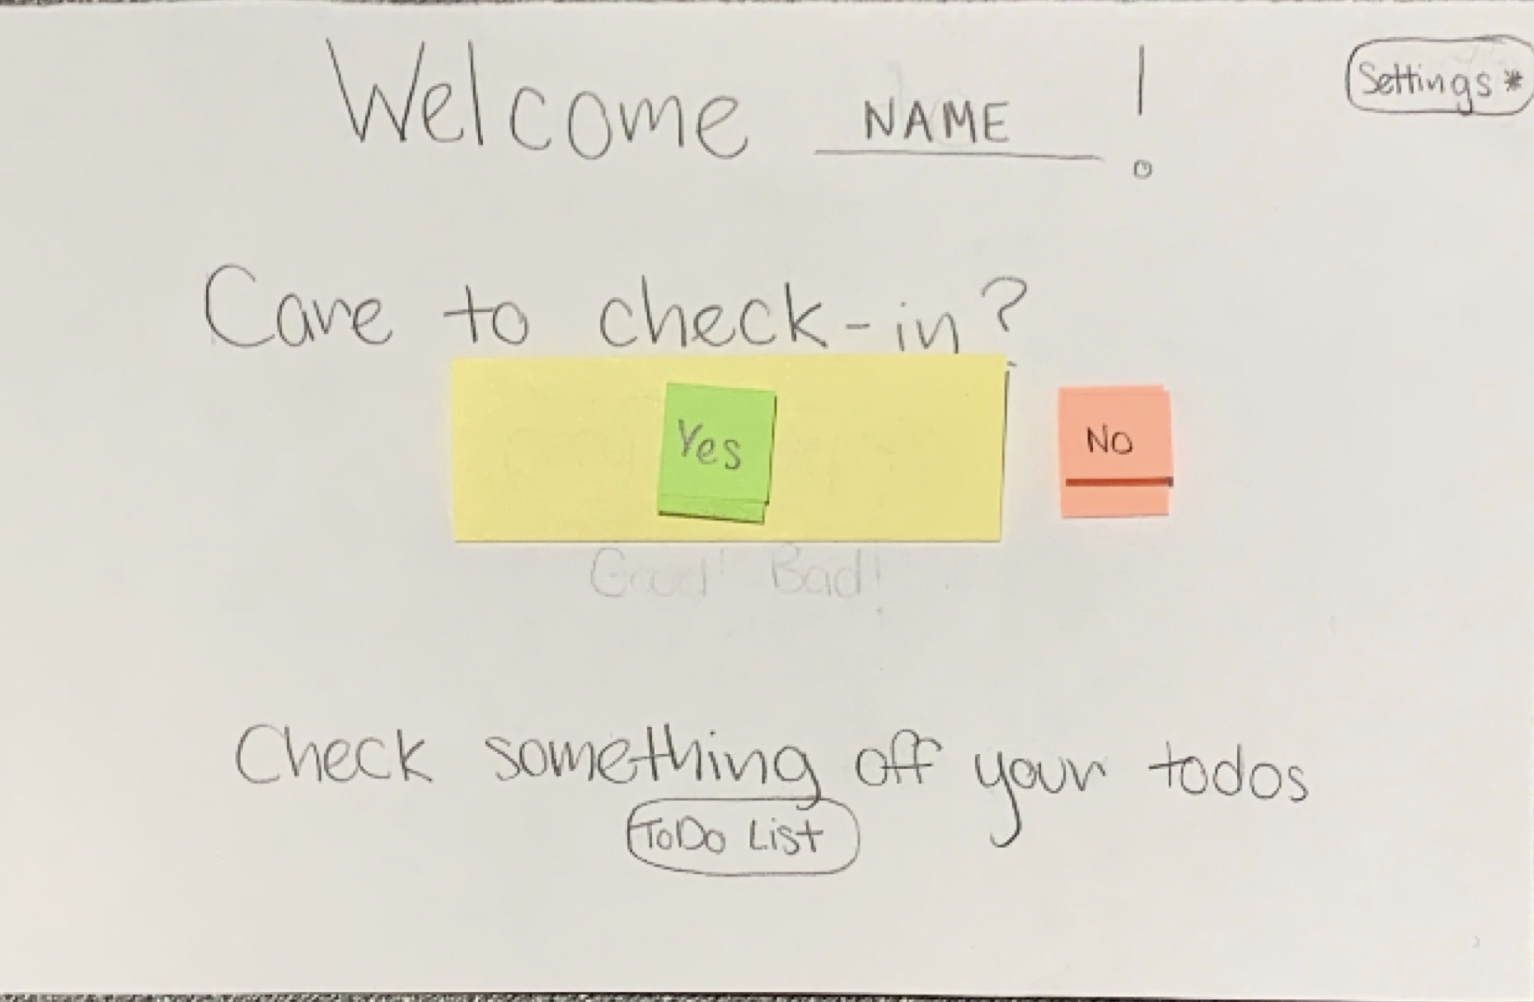 Welcome NAME !
Settings *
Care to check-in?
Yes
No
Good! Bad!
Check something off your todos
ToDo List